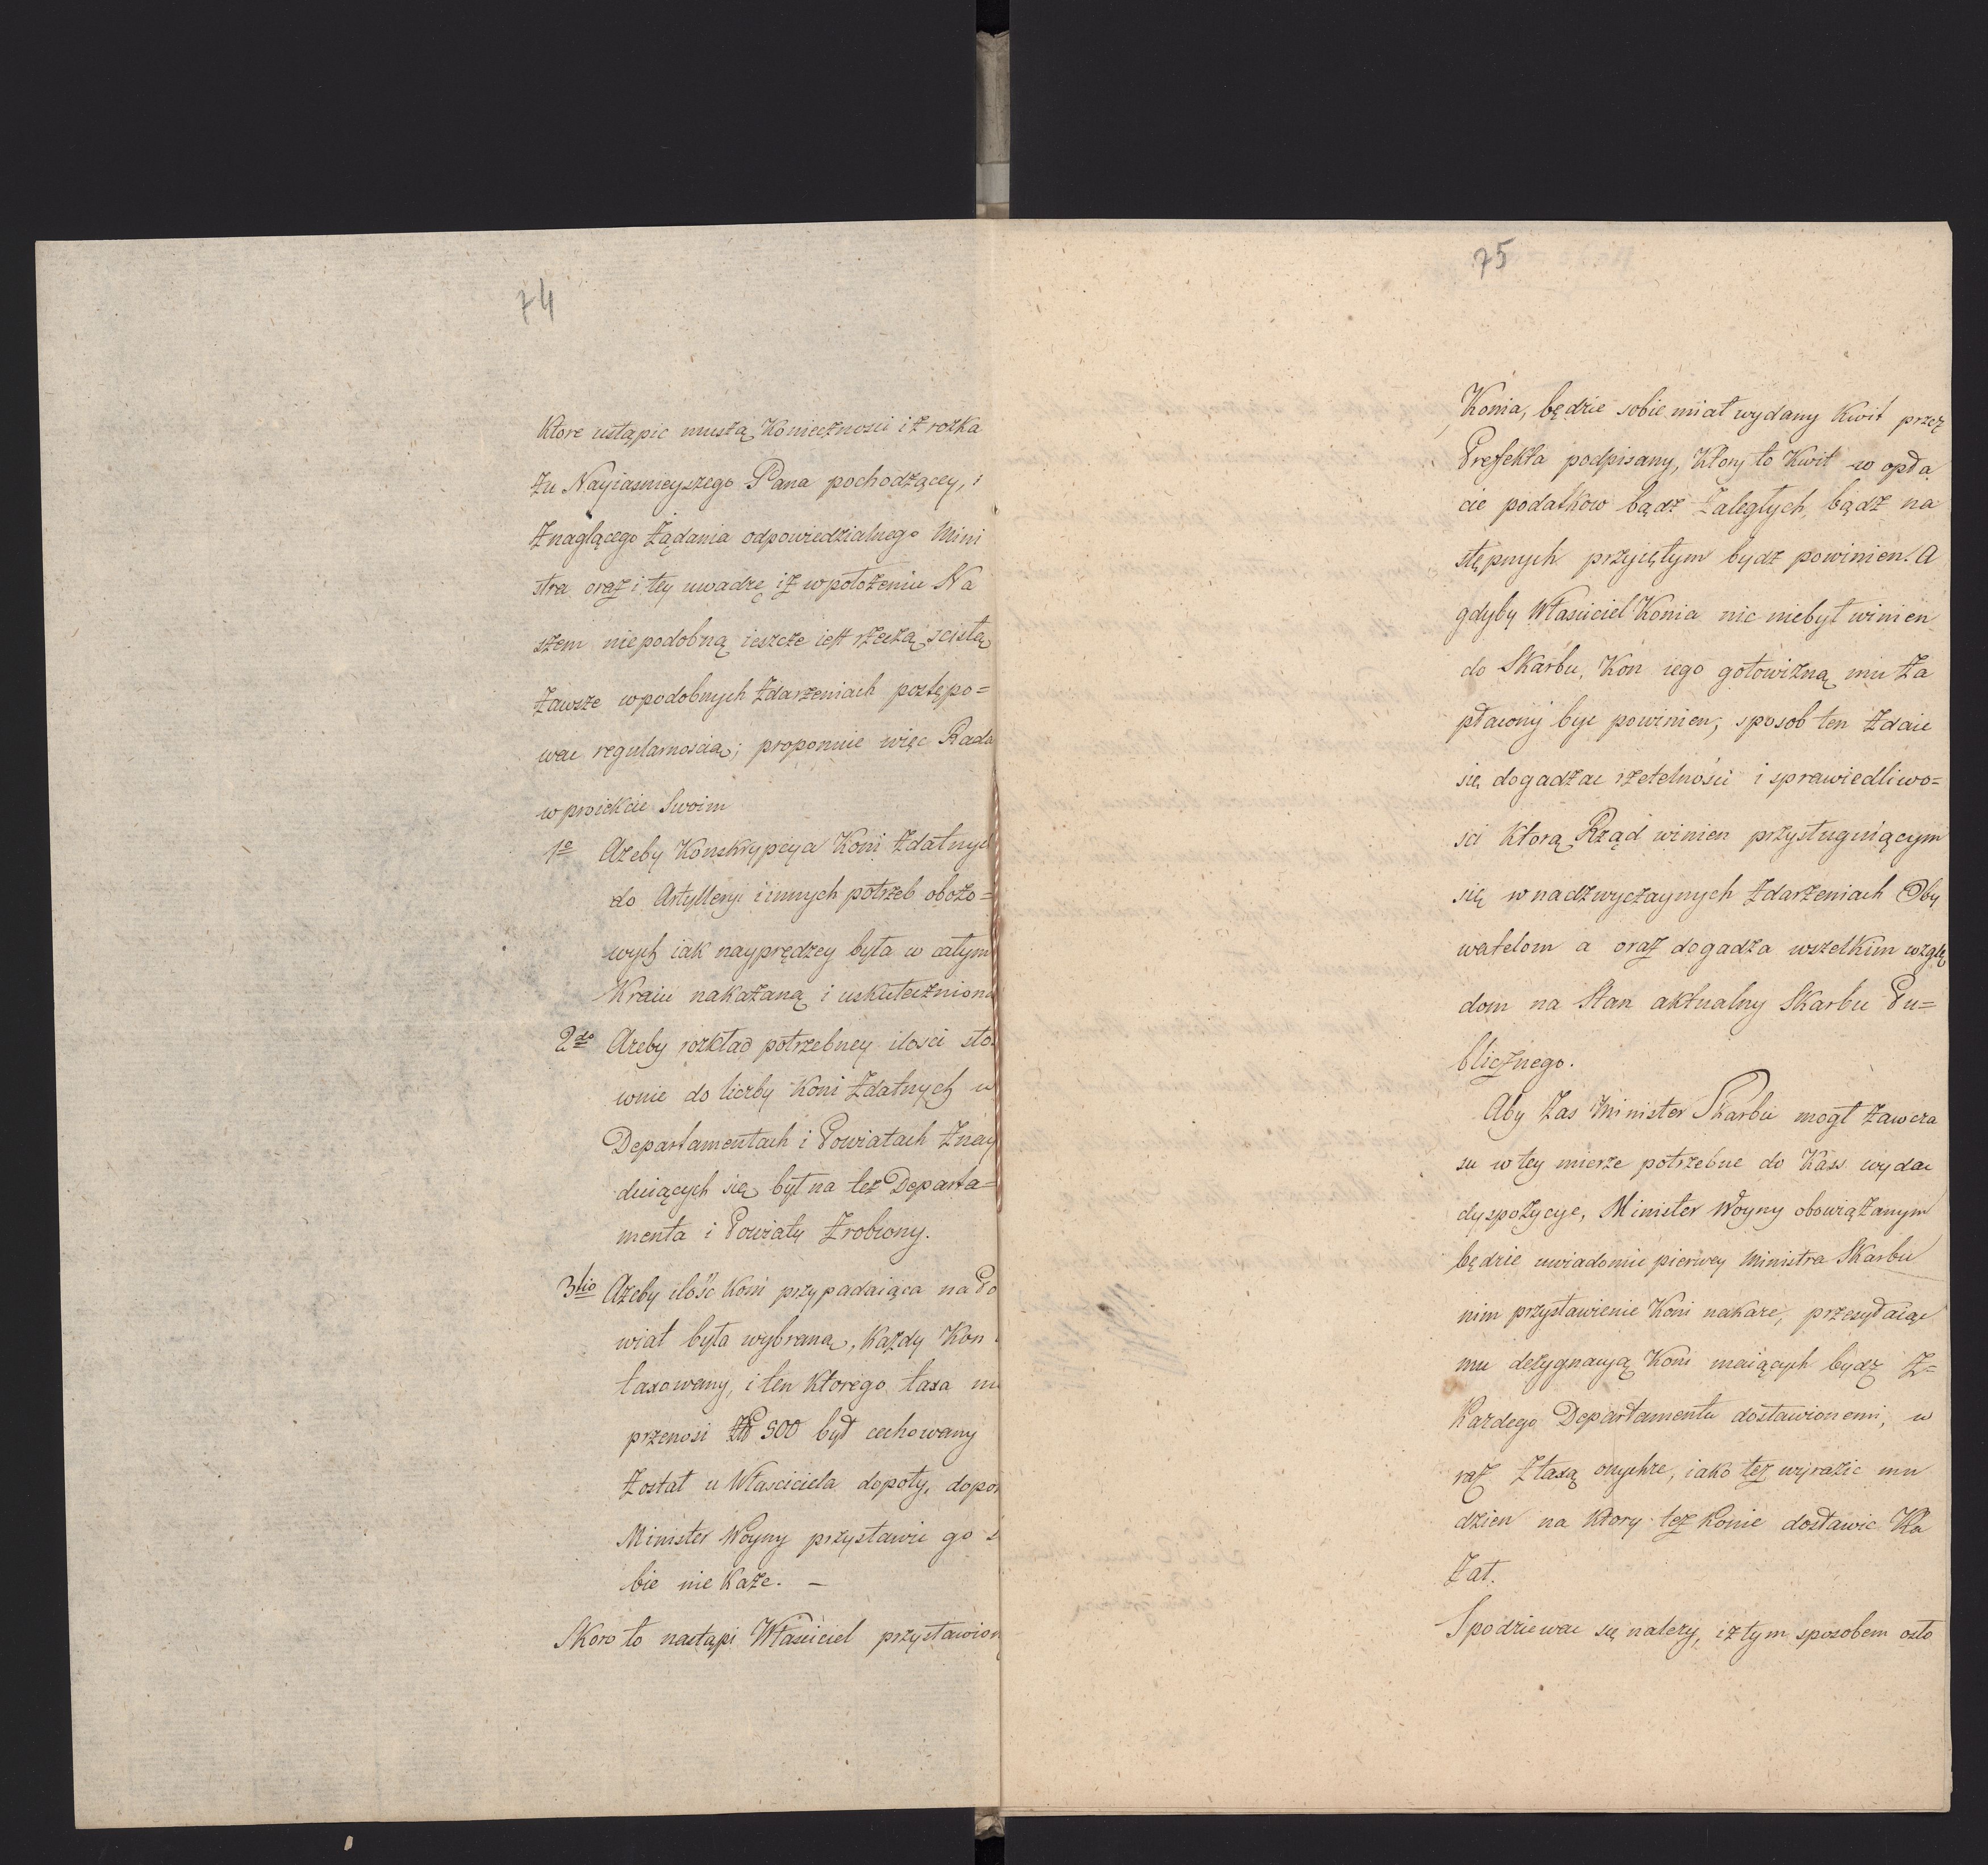 74
Ktore ustąpic muszą Koniecznosci i z rozka
zu Nayiasnieyszego Pana pochodzącey, i
znaglącego żądania odpowiedzialnego Mini
stra oraz i tey uwadze iż w położeniu Na
szem niepodobną ieszcze iest rzeczą scisłą
zawsze w podobnych zdarzeniach postępo=
wac regularnoscią; proponuie więc Rada
w proiekcie Swoim
1o Ażeby Konskrypcya Koni zdatnych
do Artylleryi i innych potrzeb obozo=
wych iak nayprędzey była w całym
Kraiu nakazaną i uskuteczniona
2do Ażeby rozkład potrzebney ilosci sto
wnie do liczby Koni zdatnych w
Departamentach i Powiatach znay
duiących się był na też Departa=
menta i Powiaty zrobiony.
3tio Ażeby ilość Koni przypadaiąca na Po
wiat była wybraną, Każdy Kon
taxowany, i ten Ktorego taxa nie
przenosi Zł 500 był cechowany
został u Własciciela dopoty, dopo
Minister Woyny przystawić go s
bie nie Każe. —
Skoro to nastąpi Własciciel przystawion
75
Konia, będzie sobie miał wydany Kwit przez
Prefekta podpisany, Ktory to Kwit w opła
cie podatkow bądź zaległych, bądź na
stępnych przyiętym bydz powinien. A
gdyby Własciciel Konia nic niebył winien
do Skarbu, Kon iego gotowizną mu za
płacony byc powinien; sposob ten zdaie
się dogadzac rzetelności i sprawiedliwo=
sci Ktorą Rząd winien przysługuiącym
się w nadzwyczaynych zdarzeniach Oby
watelom a oraz dogadza wszelkim wzglę
dom na Stan aktualny Skarbu Pu=
blicznego.
Aby zas Minister Skarbu mogł zawcza
su w tey mierze potrzebne do Kass wydac
dyspozycye, Minister Woyny obowiązanym
będzie uwiadomic pierwey Ministra Skarbu
nim przystawienie Koni nakaze, przesyłaiąc
mu dezygnacyą Koni maiących bydz z=
Każdego Departamentu dostawionemi, w
raz z taxą onychze, iako też wyrazic mu
dzien na Ktory też Konie dostawic Ka
zał.
Spodziewac się należy, iż tym sposobem osto